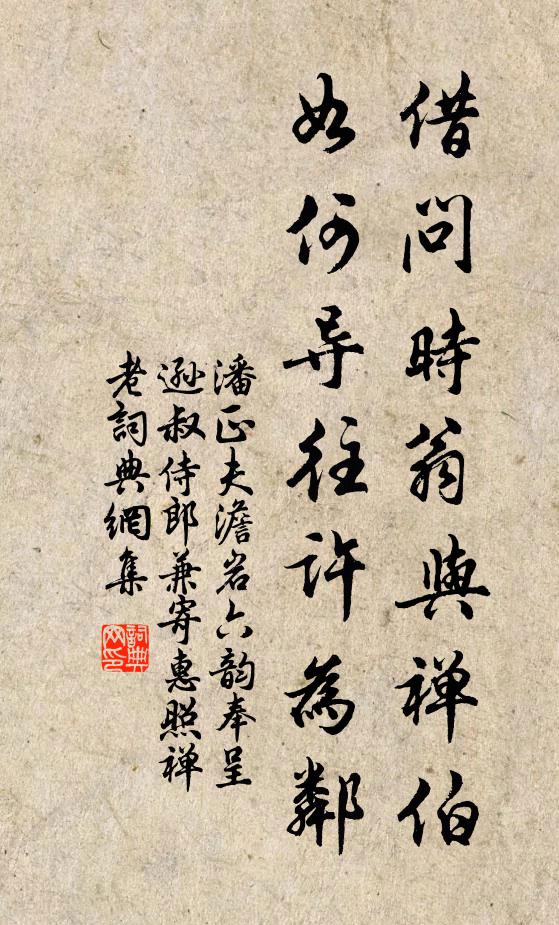 借問時翁與禅伯
如何导往许為鄰
潘正夫澹岩六韵奉呈
逊叔侍郎兼寄惠照禅
老詞典網集
詞典
网印